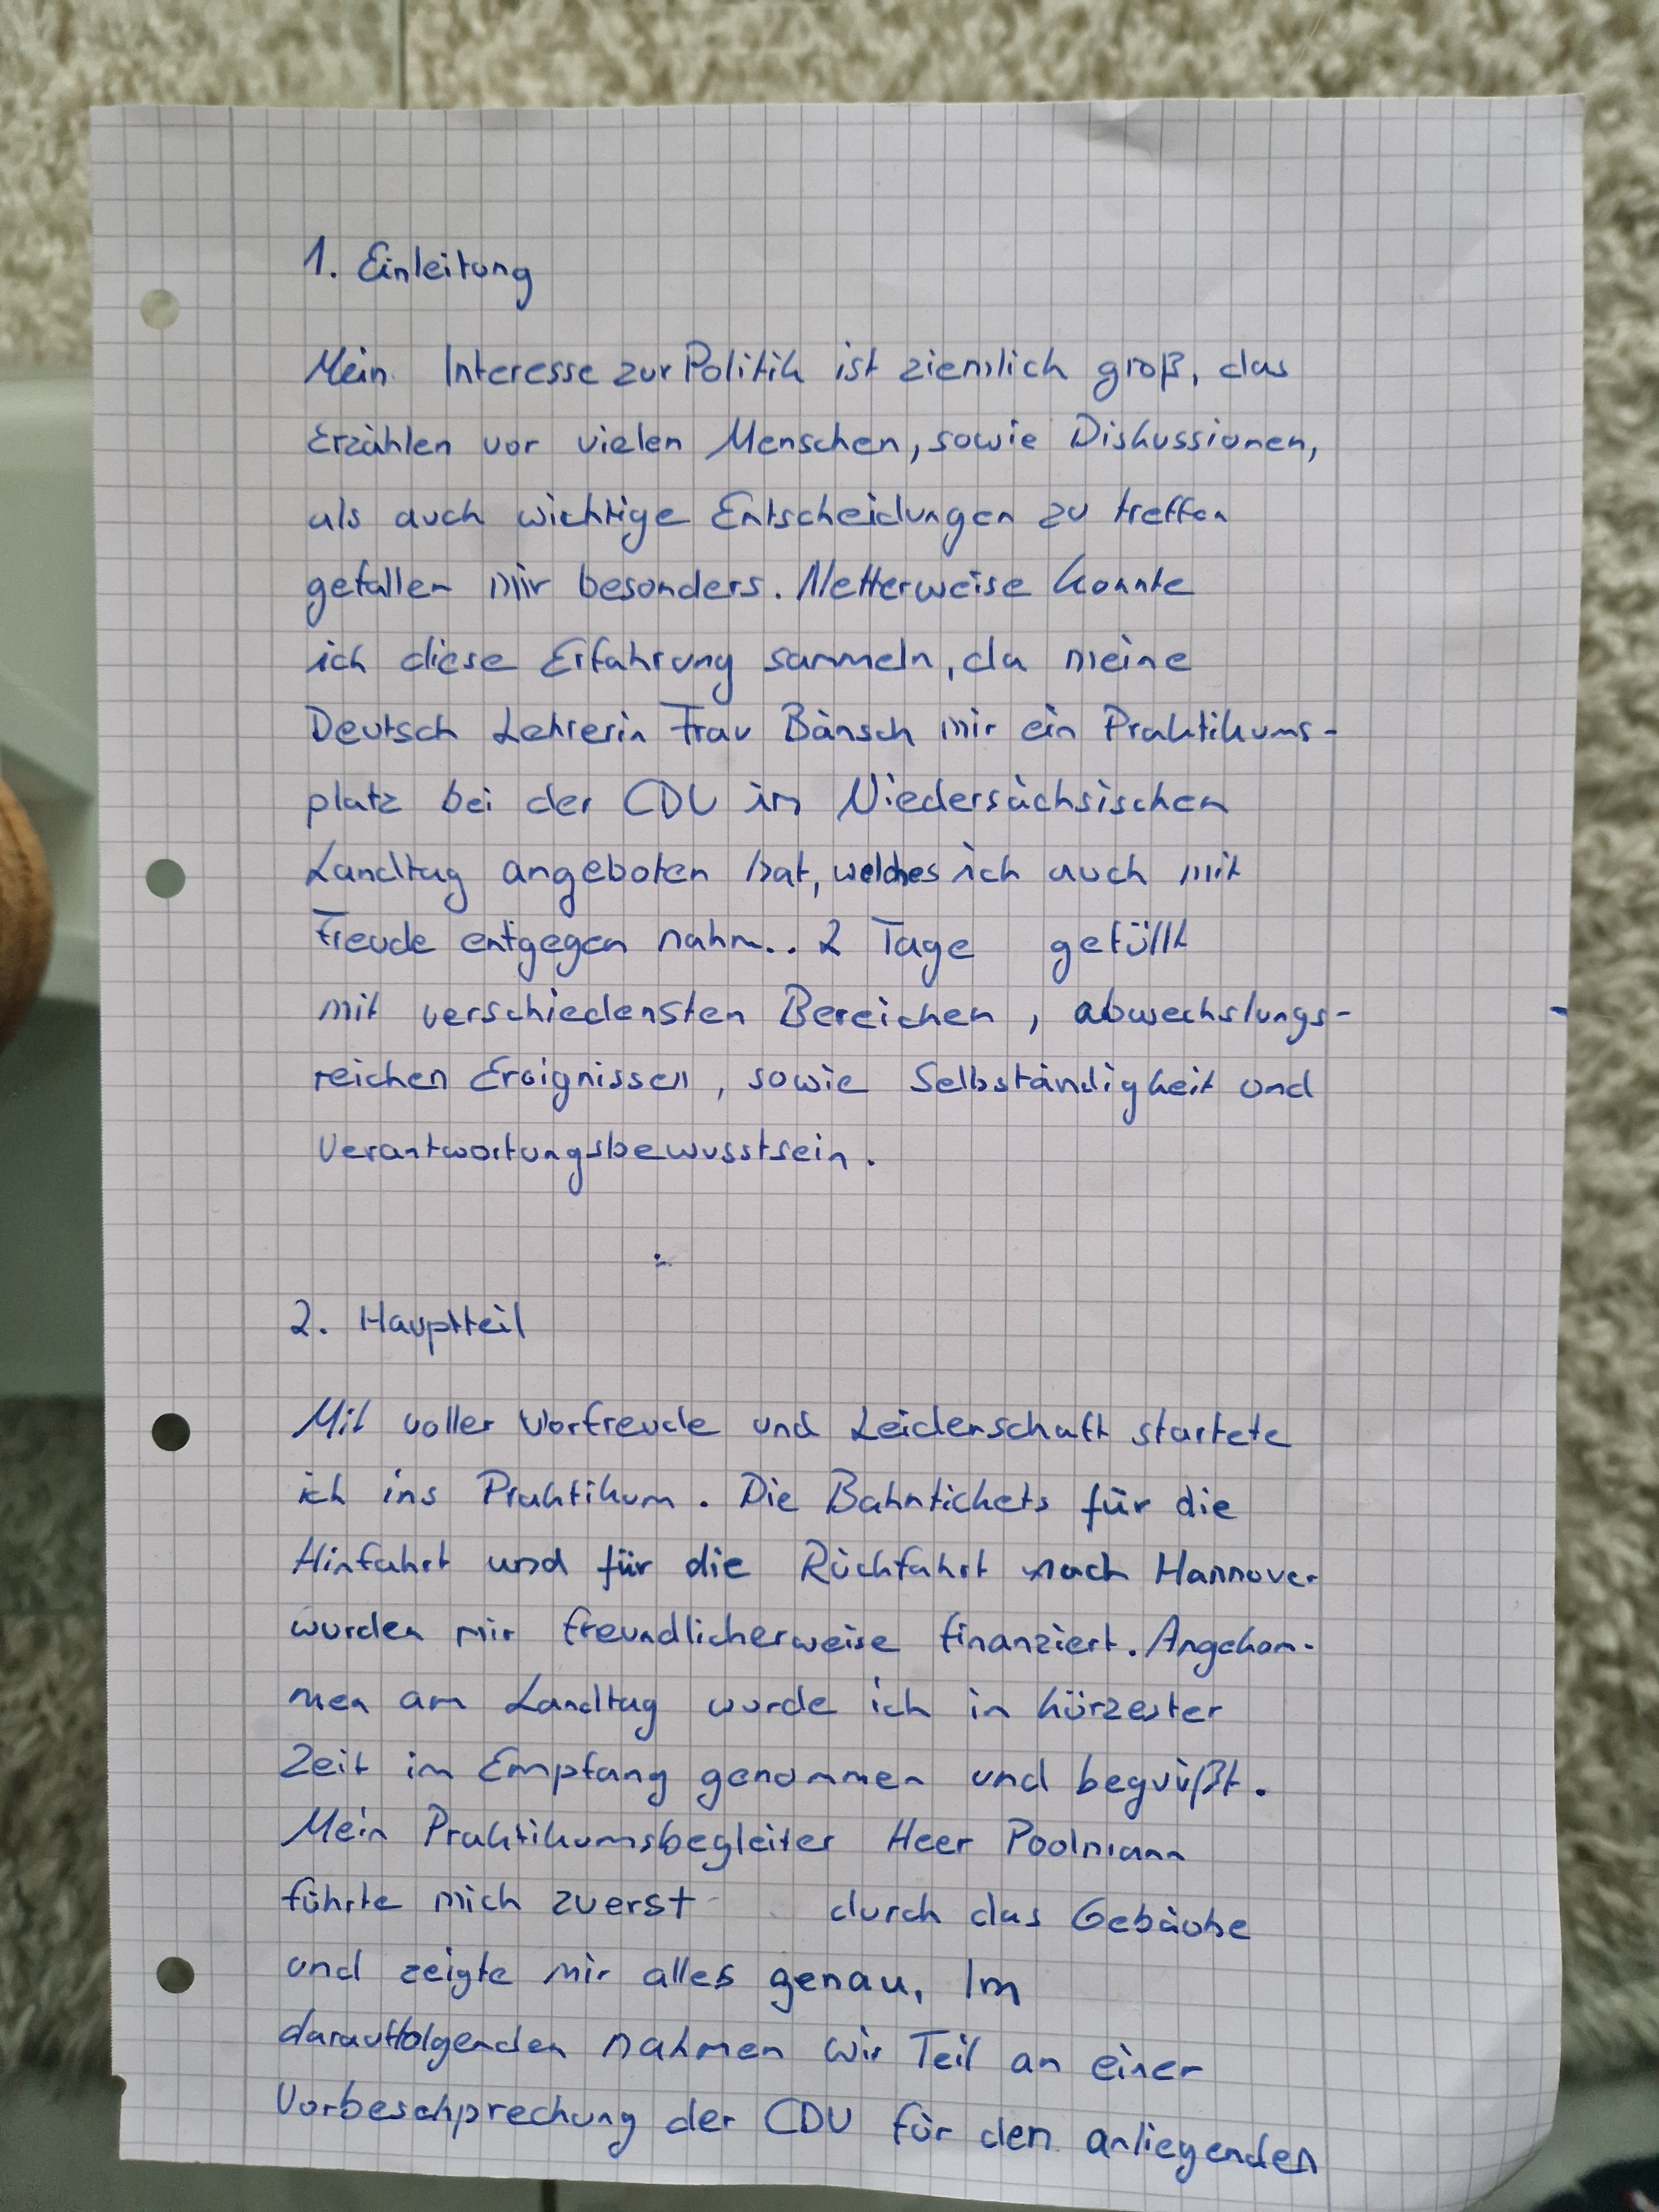 1. Einleitung
Mein Interesse zur Politik ist ziemlich groß, das
Erzählen vor vielen Menschen, sowie Diskussionen,
als auch wichtige Entscheidungen zu treffen
gefallen mir besonders. Netterweise konnte
ich diese Erfahrung sammeln, da meine
Deutsch Lehrerin Frau Bänsch mir ein Praktikums-
platz bei der CDU im Niedersächsischen
Landtag angeboten hat, welches ich auch mit
Freude entgegen nahm.. 2 Tage gefüllt
mit verschiedensten Bereichen, abwechslungs-
reichen Ereignissen, sowie Selbständigkeit und
Verantwortungsbewusstsein.
2. Hauptteil
Mit voller Vorfreude und Leidenschaft startete
ich ins Praktikum. Die Bahntickets für die
Hinfahrt und für die Rückfahrt nach Hannover
wurden mir freundlicherweise finanziert. Angekom-
men am Landtag wurde ich in kürzester
Zeit im Empfang genommen und begrüßt.
Mein Praktikumsbegleiter Heer Poolmann
führte mich zuerst durch das Gebäude
und zeigte mir alles genau, Im
darauffolgenden nahmen wir Teil an einer
Vorbeschprechung der CDU für den anliegenden